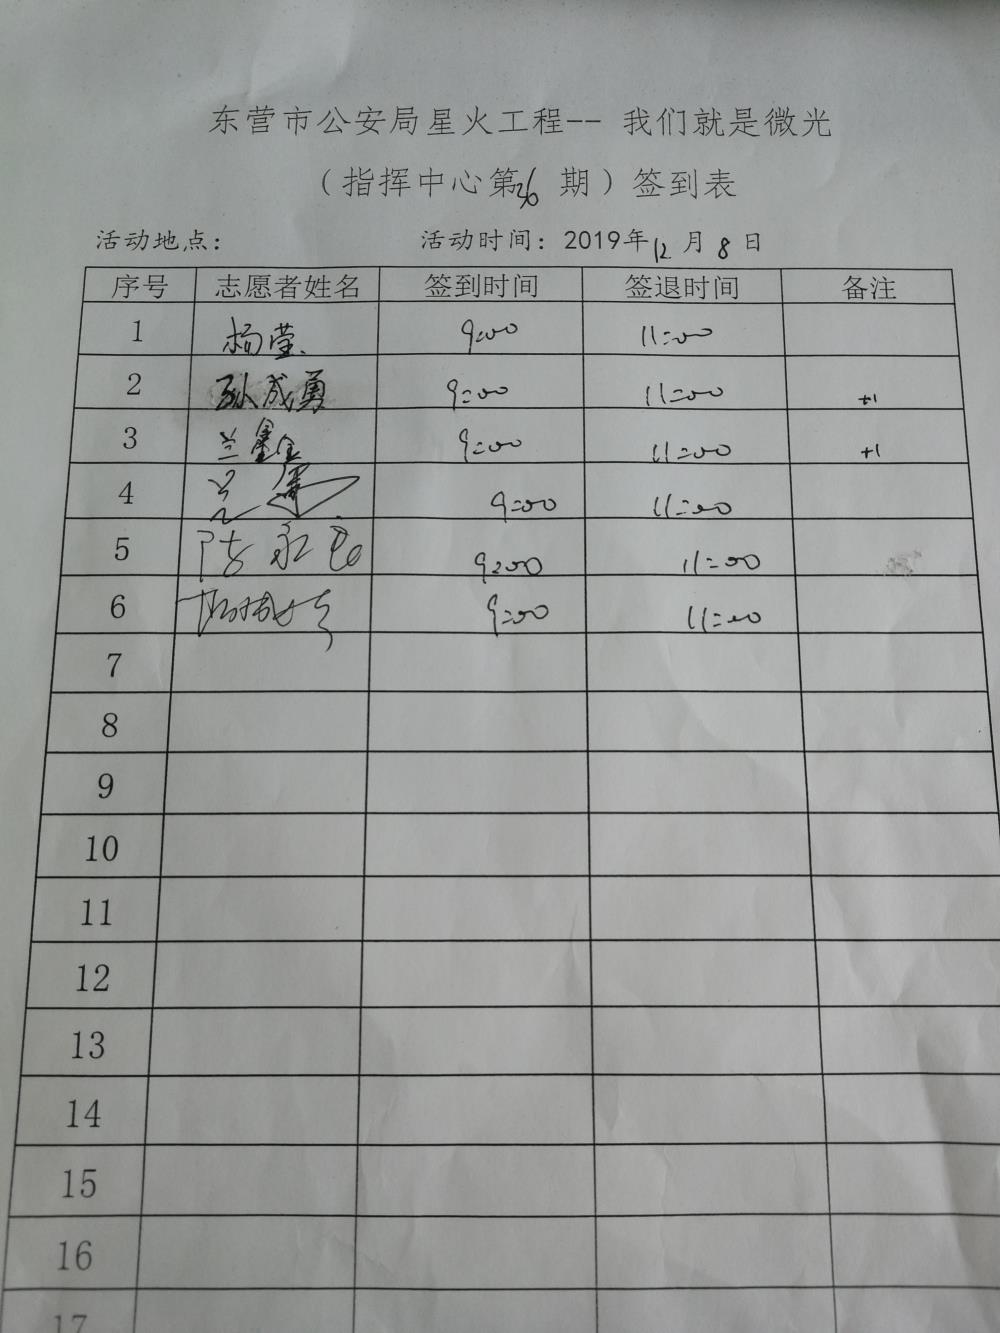 东营市公安局星火工程-- 我们就是微光
（指挥中心第36 期）签到表
活动地点： 活动时间：2019年12月8日
序号 志愿者姓名 签到时间 签退时间 备注
1 杨莹 9:00 11:00
2 孙成勇 9:00 11:00 +1
3 兰鑫金 9:00 11:00 +1
4 9:00 11:00
5 陈永 9:00 11:00
6 9:00 11:00
7
8
9
10
11
12
13
14
15
16
17